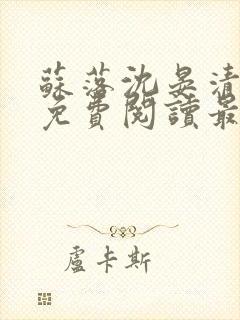 蘇落沈晏清
免費閱讀最
盧卡斯